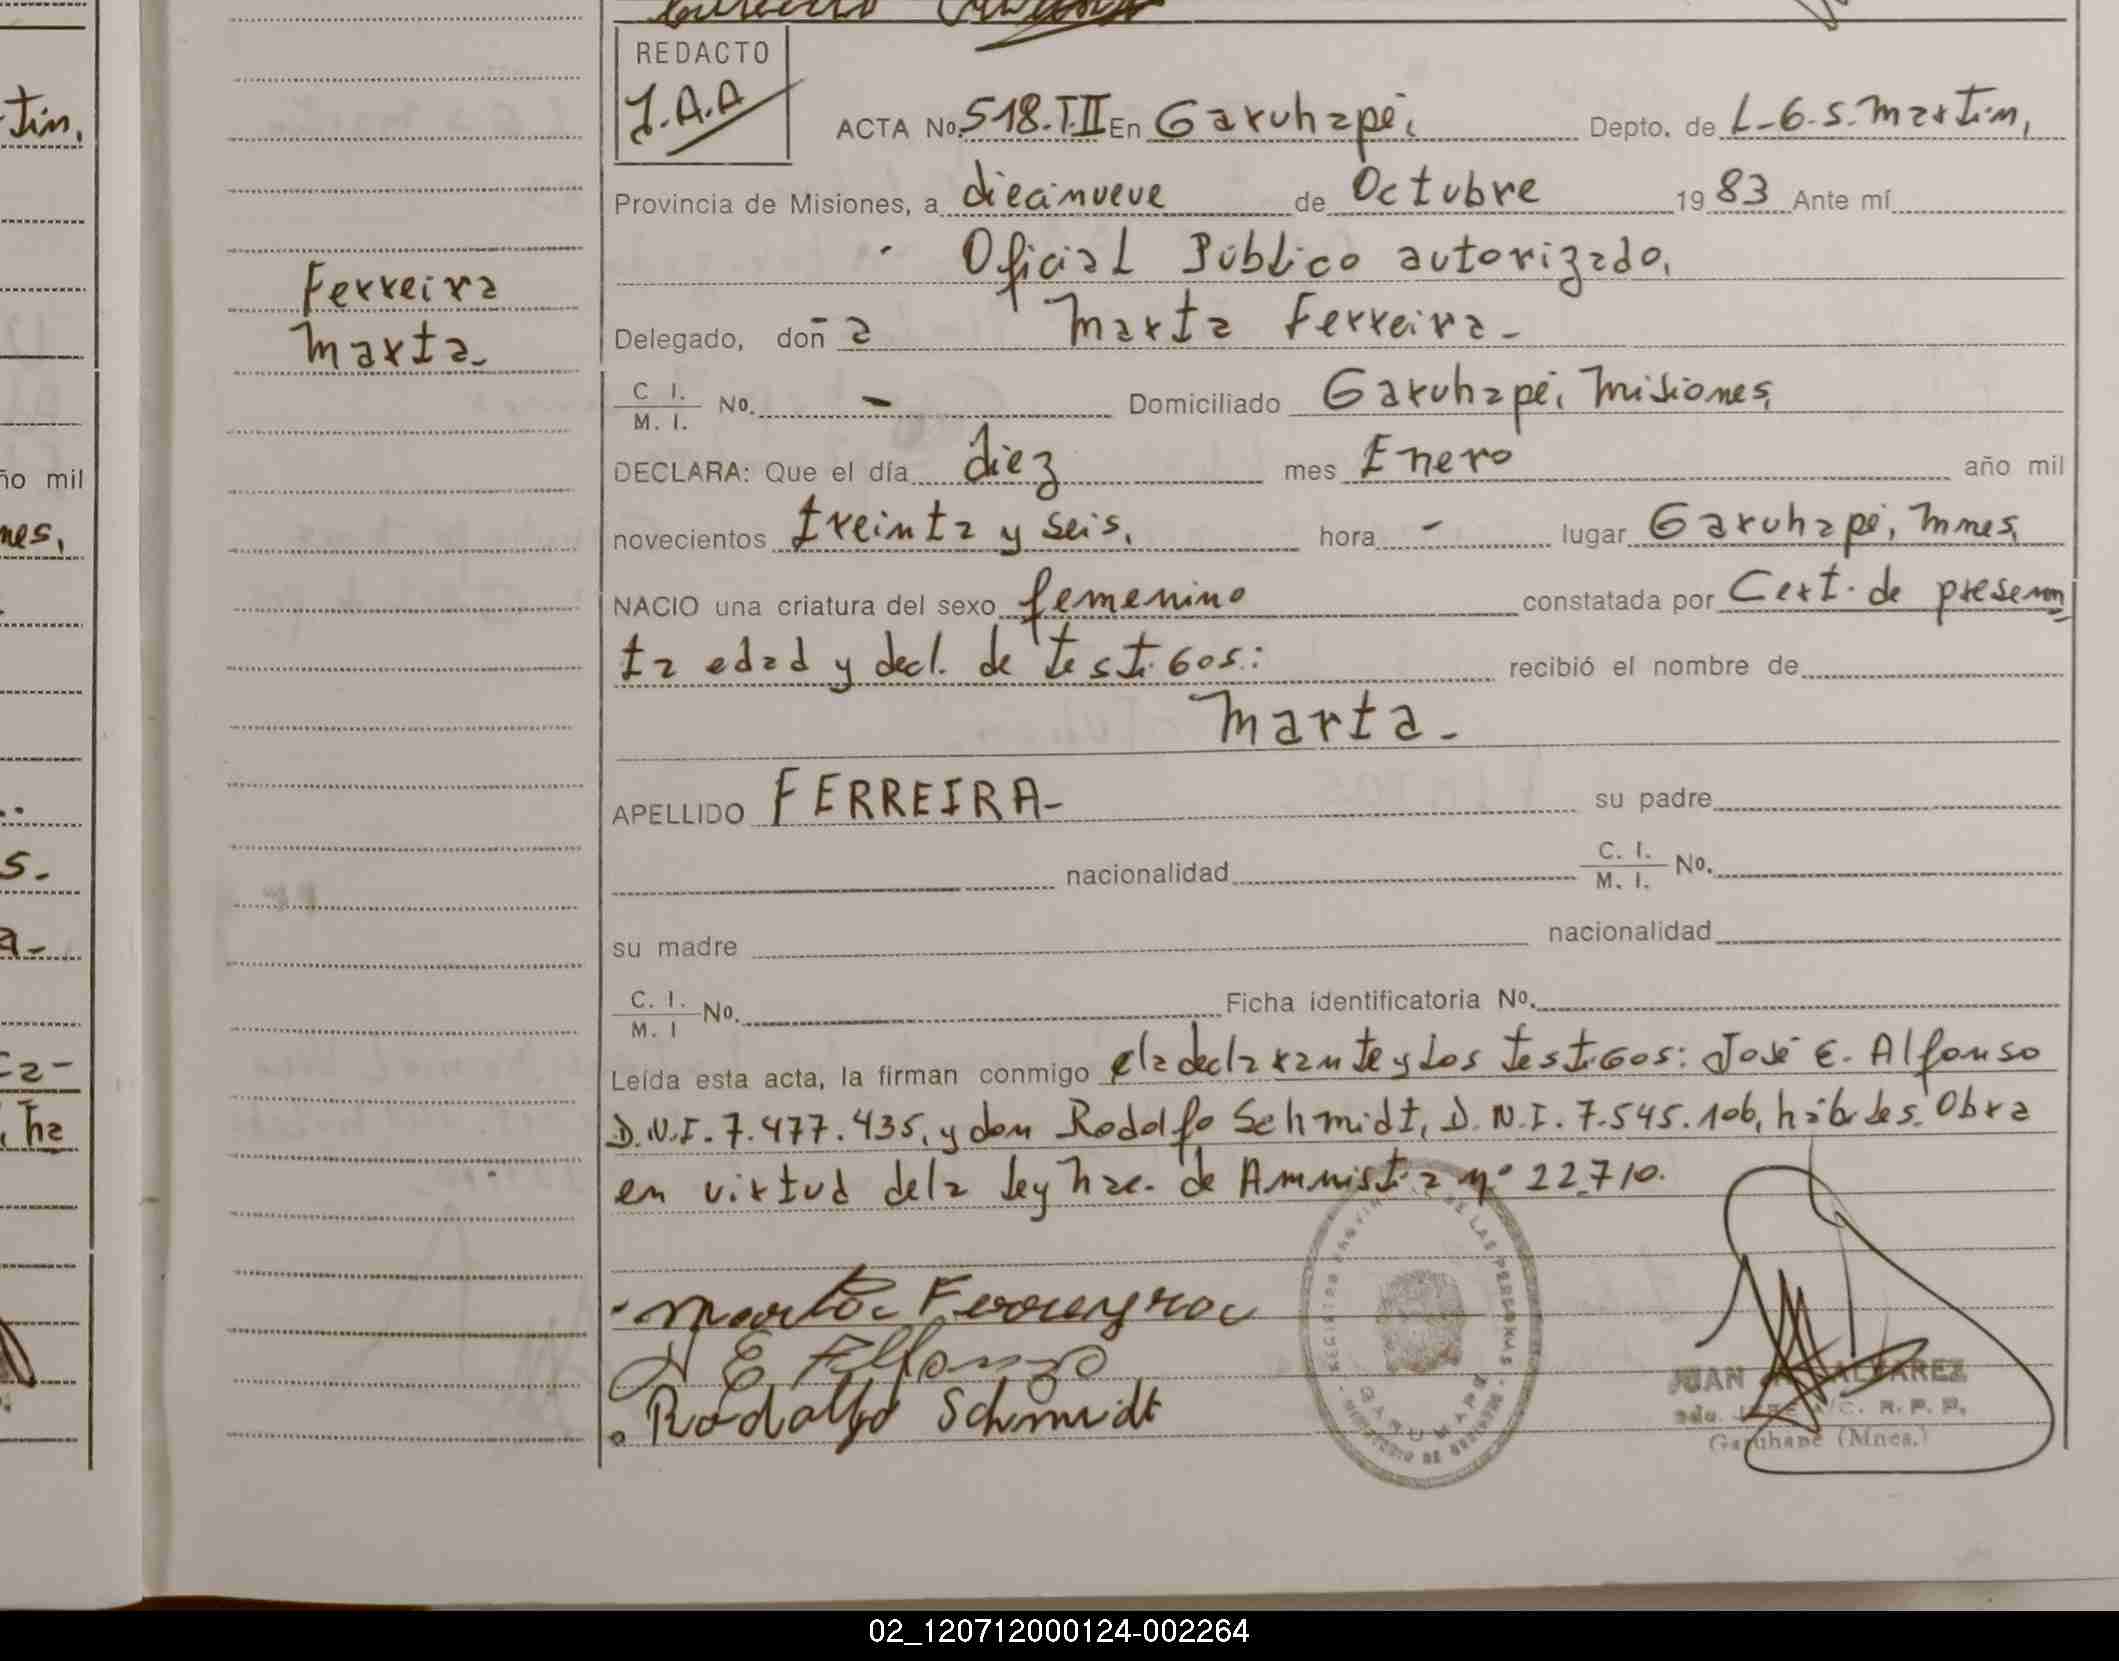 tin,
ño mil
nes,
s.
a-
ta-
, ha
Ferreira
Marta-
REDACTO
J.A.A
ACTA No. 518.T.II En Garuhapé, Depto. de L-G-S. Martin,
Provincia de Misiones, a diecinueve de Octubre 19 83 Ante mí
Oficial Público autorizado,
Delegado, don a Marta Ferreira-
C. I. / M. I. No. - Domiciliado Garuhapé, Misiones,
DECLARA: Que el día diez mes Enero año mil
novecientos treinta y seis, hora - lugar Garuhapé, Mnes,
NACIO una criatura del sexo femenino constatada por Cert. de presun
ta edad y decl. de testigos: recibió el nombre de
Marta-
APELLIDO FERREIRA- su padre
nacionalidad C. I. / M. I. No.
su madre nacionalidad
C. I. / M. I No. Ficha identificatoria No.
Leída esta acta, la firman conmigo la declarante y los testigos: José E. Alfonso
D.N.I. 7.477.435, y don Rodolfo Schmidt, D.N.I. 7.545.106, hábiles. Obra
en virtud de la ley Nac. de Amnistia nº 22.710.
Marta Ferreyra
J E Alfonzo
Rodolfo Schmidt
REGISTRO PROVINCIAL DE LAS PERSONAS
GARUHAPE
MINISTERIO DE GOBIERNO
JUAN ALVAREZ
R. P. P.
Garuhapé (Mnes.)
02_120712000124-002264